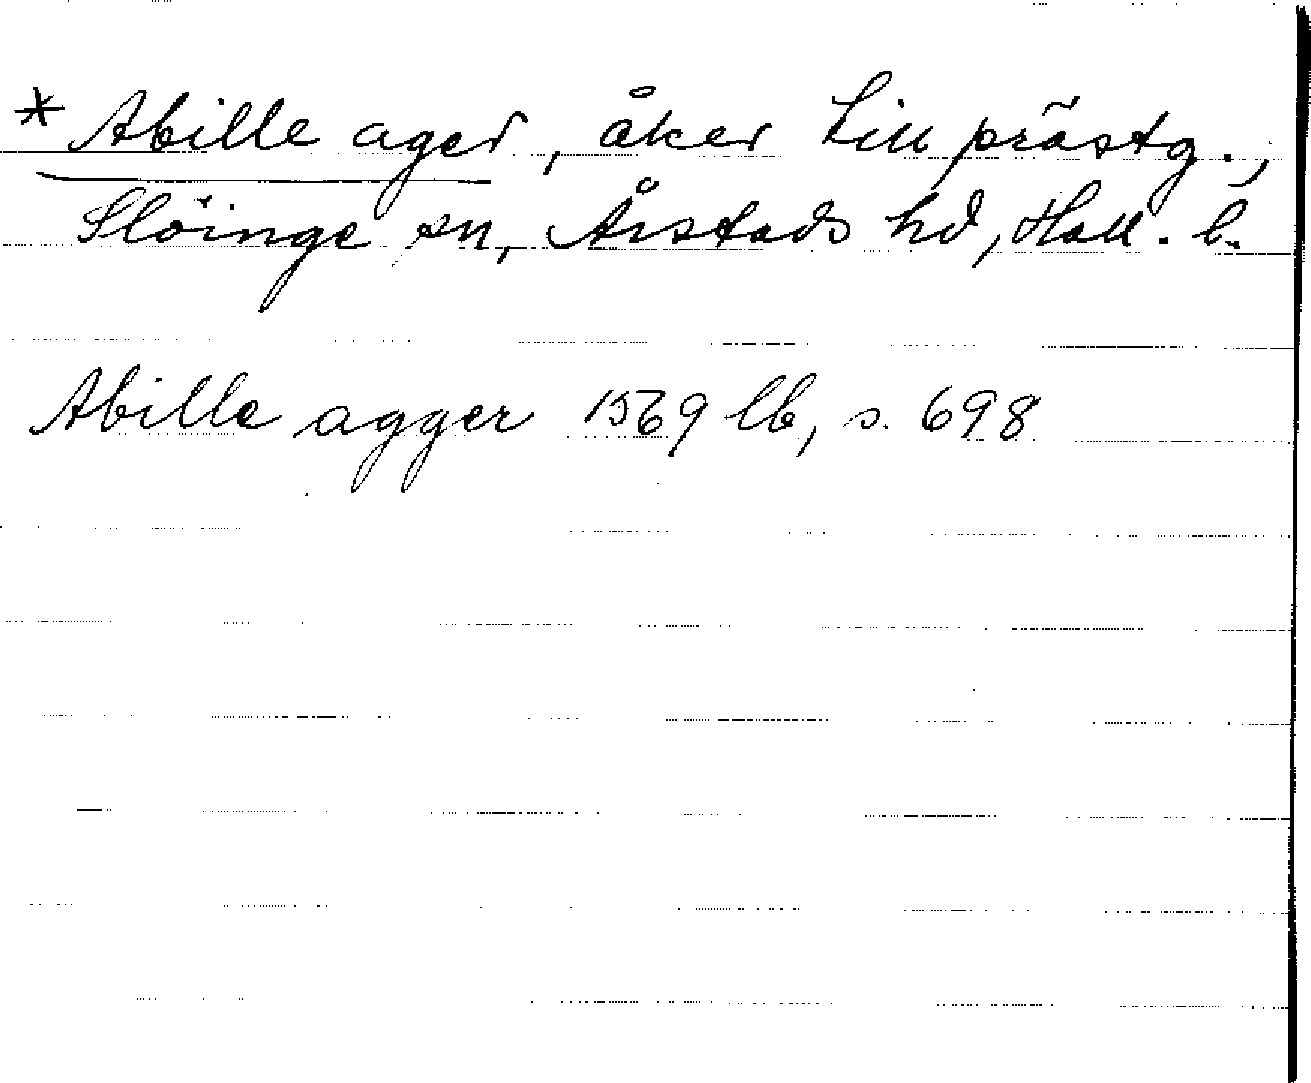 * Abille ager, åker till prästg.,
Slöinge sn, Årstads hd, Hall. l.
Abille agger 1569 lb, s. 698